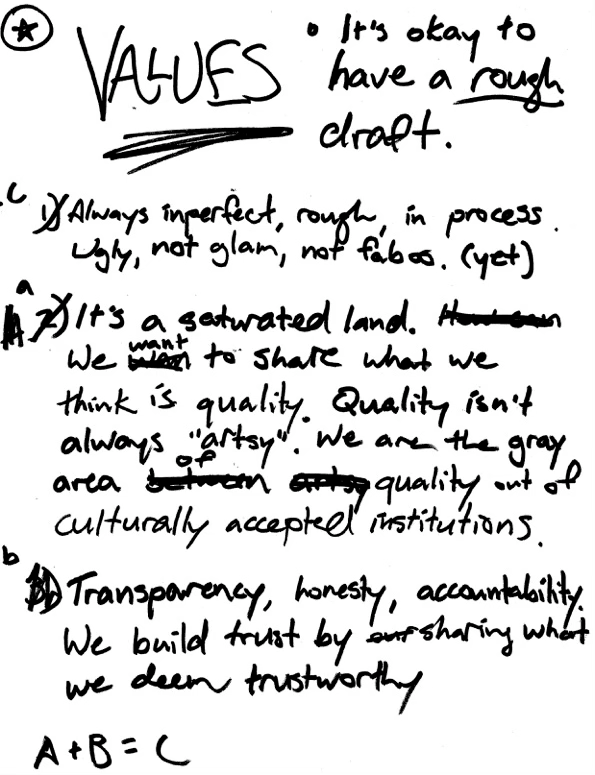 VALUES
• It's okay to
have a rough
draft.
C
1) Always inperfect, rough, in process.
Ugly, not glam, not faboo. (yet)
a
A 2) It's a saturated land.
We want to share what we
think is quality. Quality isn't
always "artsy". We are the gray
area of quality out of
culturally accepted institutions.
b
Transparency, honesty, accountability.
We build trust by sharing what
we deem trustworthy
A + B = C